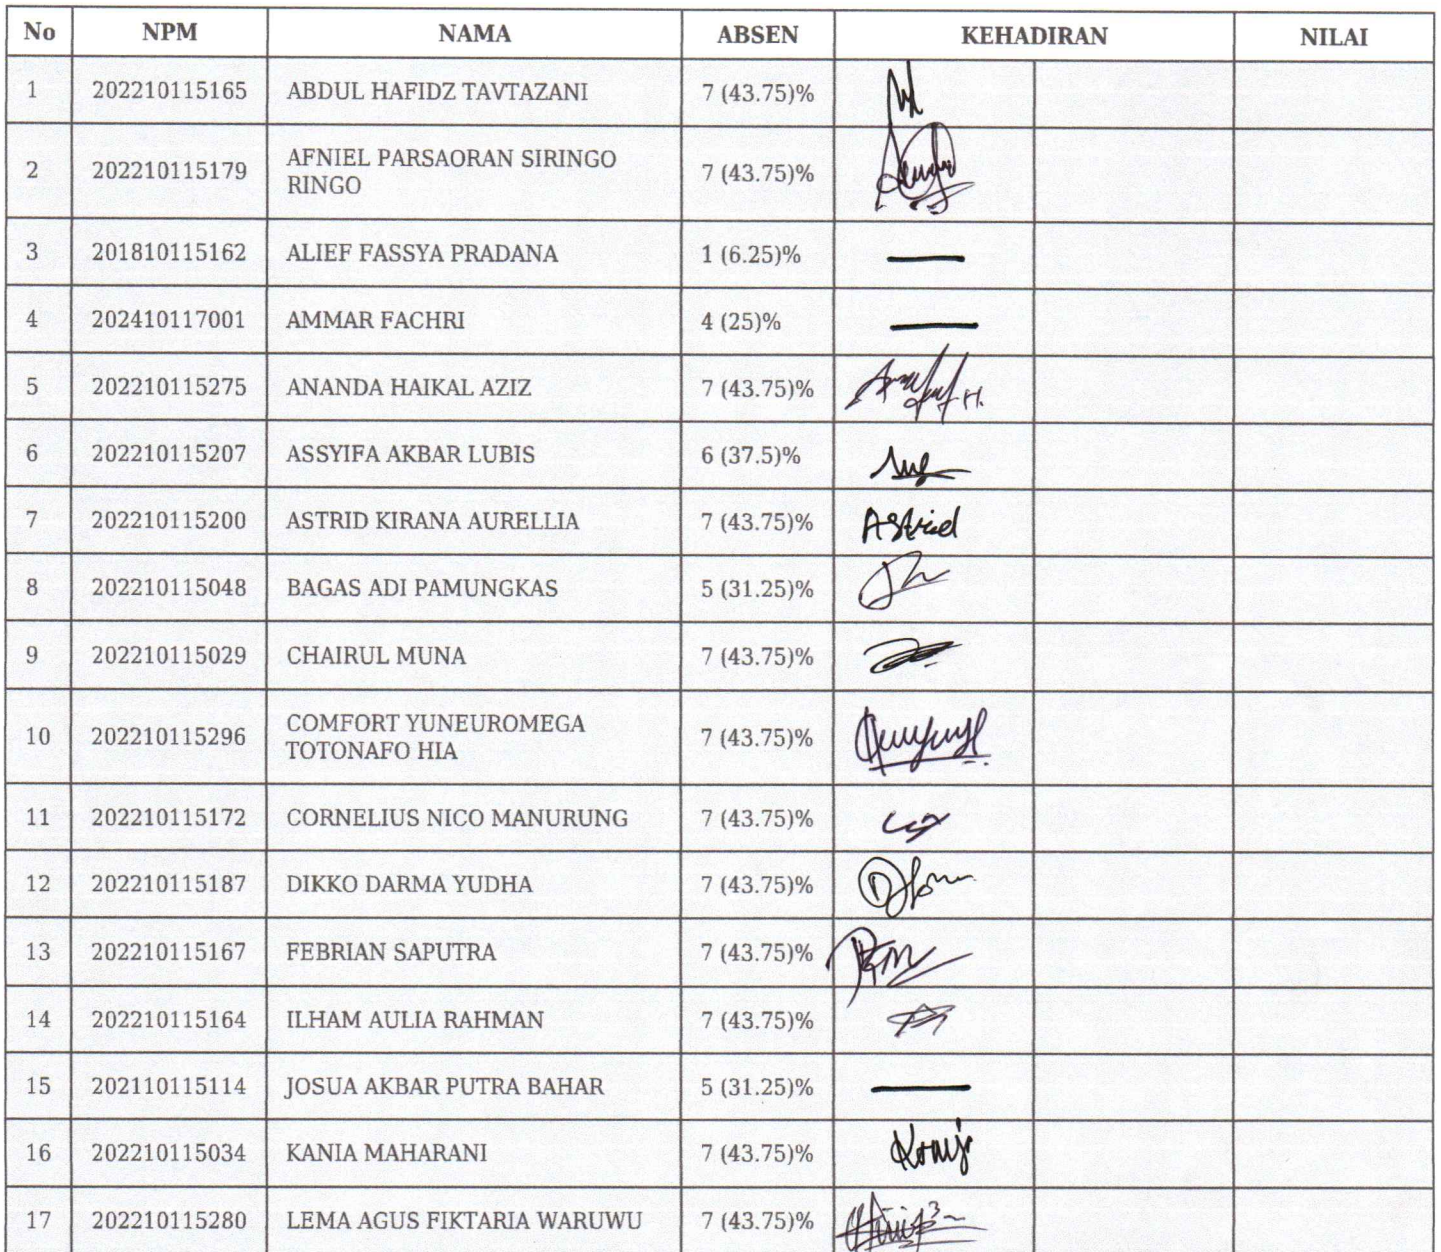 No NPM NAMA ABSEN KEHADIRAN NILAI
1 202210115165 ABDUL HAFIDZ TAVTAZANI 7 (43.75)%
2 202210115179 AFNIEL PARSAORAN SIRINGO RINGO 7 (43.75)%
3 201810115162 ALIEF FASSYA PRADANA 1 (6.25)%
4 202410117001 AMMAR FACHRI 4 (25)%
5 202210115275 ANANDA HAIKAL AZIZ 7 (43.75)%
6 202210115207 ASSYIFA AKBAR LUBIS 6 (37.5)%
7 202210115200 ASTRID KIRANA AURELLIA 7 (43.75)% Astrid
8 202210115048 BAGAS ADI PAMUNGKAS 5 (31.25)%
9 202210115029 CHAIRUL MUNA 7 (43.75)%
10 202210115296 COMFORT YUNEUROMEGA TOTONAFO HIA 7 (43.75)%
11 202210115172 CORNELIUS NICO MANURUNG 7 (43.75)%
12 202210115187 DIKKO DARMA YUDHA 7 (43.75)%
13 202210115167 FEBRIAN SAPUTRA 7 (43.75)%
14 202210115164 ILHAM AULIA RAHMAN 7 (43.75)%
15 202110115114 JOSUA AKBAR PUTRA BAHAR 5 (31.25)%
16 202210115034 KANIA MAHARANI 7 (43.75)%
17 202210115280 LEMA AGUS FIKTARIA WARUWU 7 (43.75)%